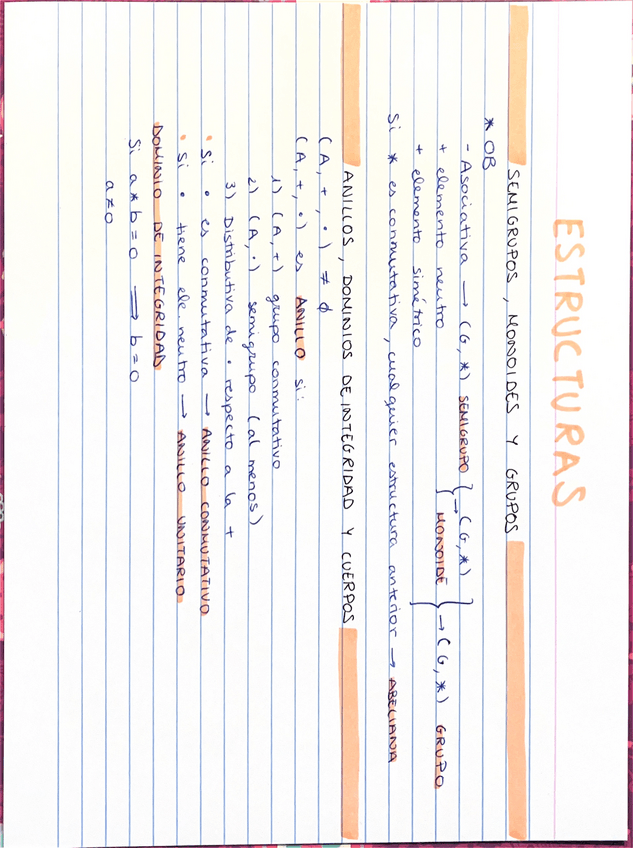 ESTRUCTURAS
SEMIGRUPOS, MONOIDES Y GRUPOS
* OB
- Asociativa → (G, *) SEMIGRUPO } → (G, *)
+ elemento neutro MONOIDE } → (G, *) GRUPO
+ elemento simétrico
Si * es conmutativa, cualquier estructura anterior → ABELIANA
ANILLOS, DOMINIOS DE INTEGRIDAD Y CUERPOS
(A, +, ·) ≠ ∅
(A, +, ·) es ANILLO si:
1) (A, +) grupo conmutativo
2) (A, ·) semigrupo (al menos)
3) Distributiva de · respecto a la +
• Si · es conmutativa → ANILLO CONMUTATIVO
• Si · tiene ele neutro → ANILLO UNITARIO
DOMINIO DE INTEGRIDAD
Si a * b = 0 ⟶ b = 0
a ≠ 0